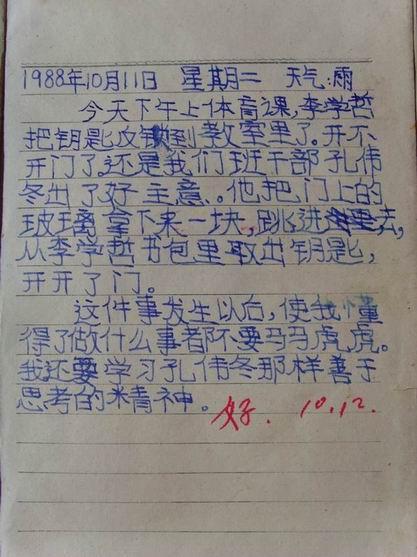 1988年10月11日 星期二 天气:雨
今天下午上体育课,李学哲
把钥匙锁到教室里了。开不
开门了。还是我们班干部孔伟
冬出了好主意、。他把门上的
玻璃拿下来一块,跳进去,
从李学哲书包里取出钥匙,
开开了门。
这件事发生以后,使我懂
得了做什么事都不要马马虎,虎。
我还要学习孔伟冬那样善于
思考的精神。 好. 10.12.